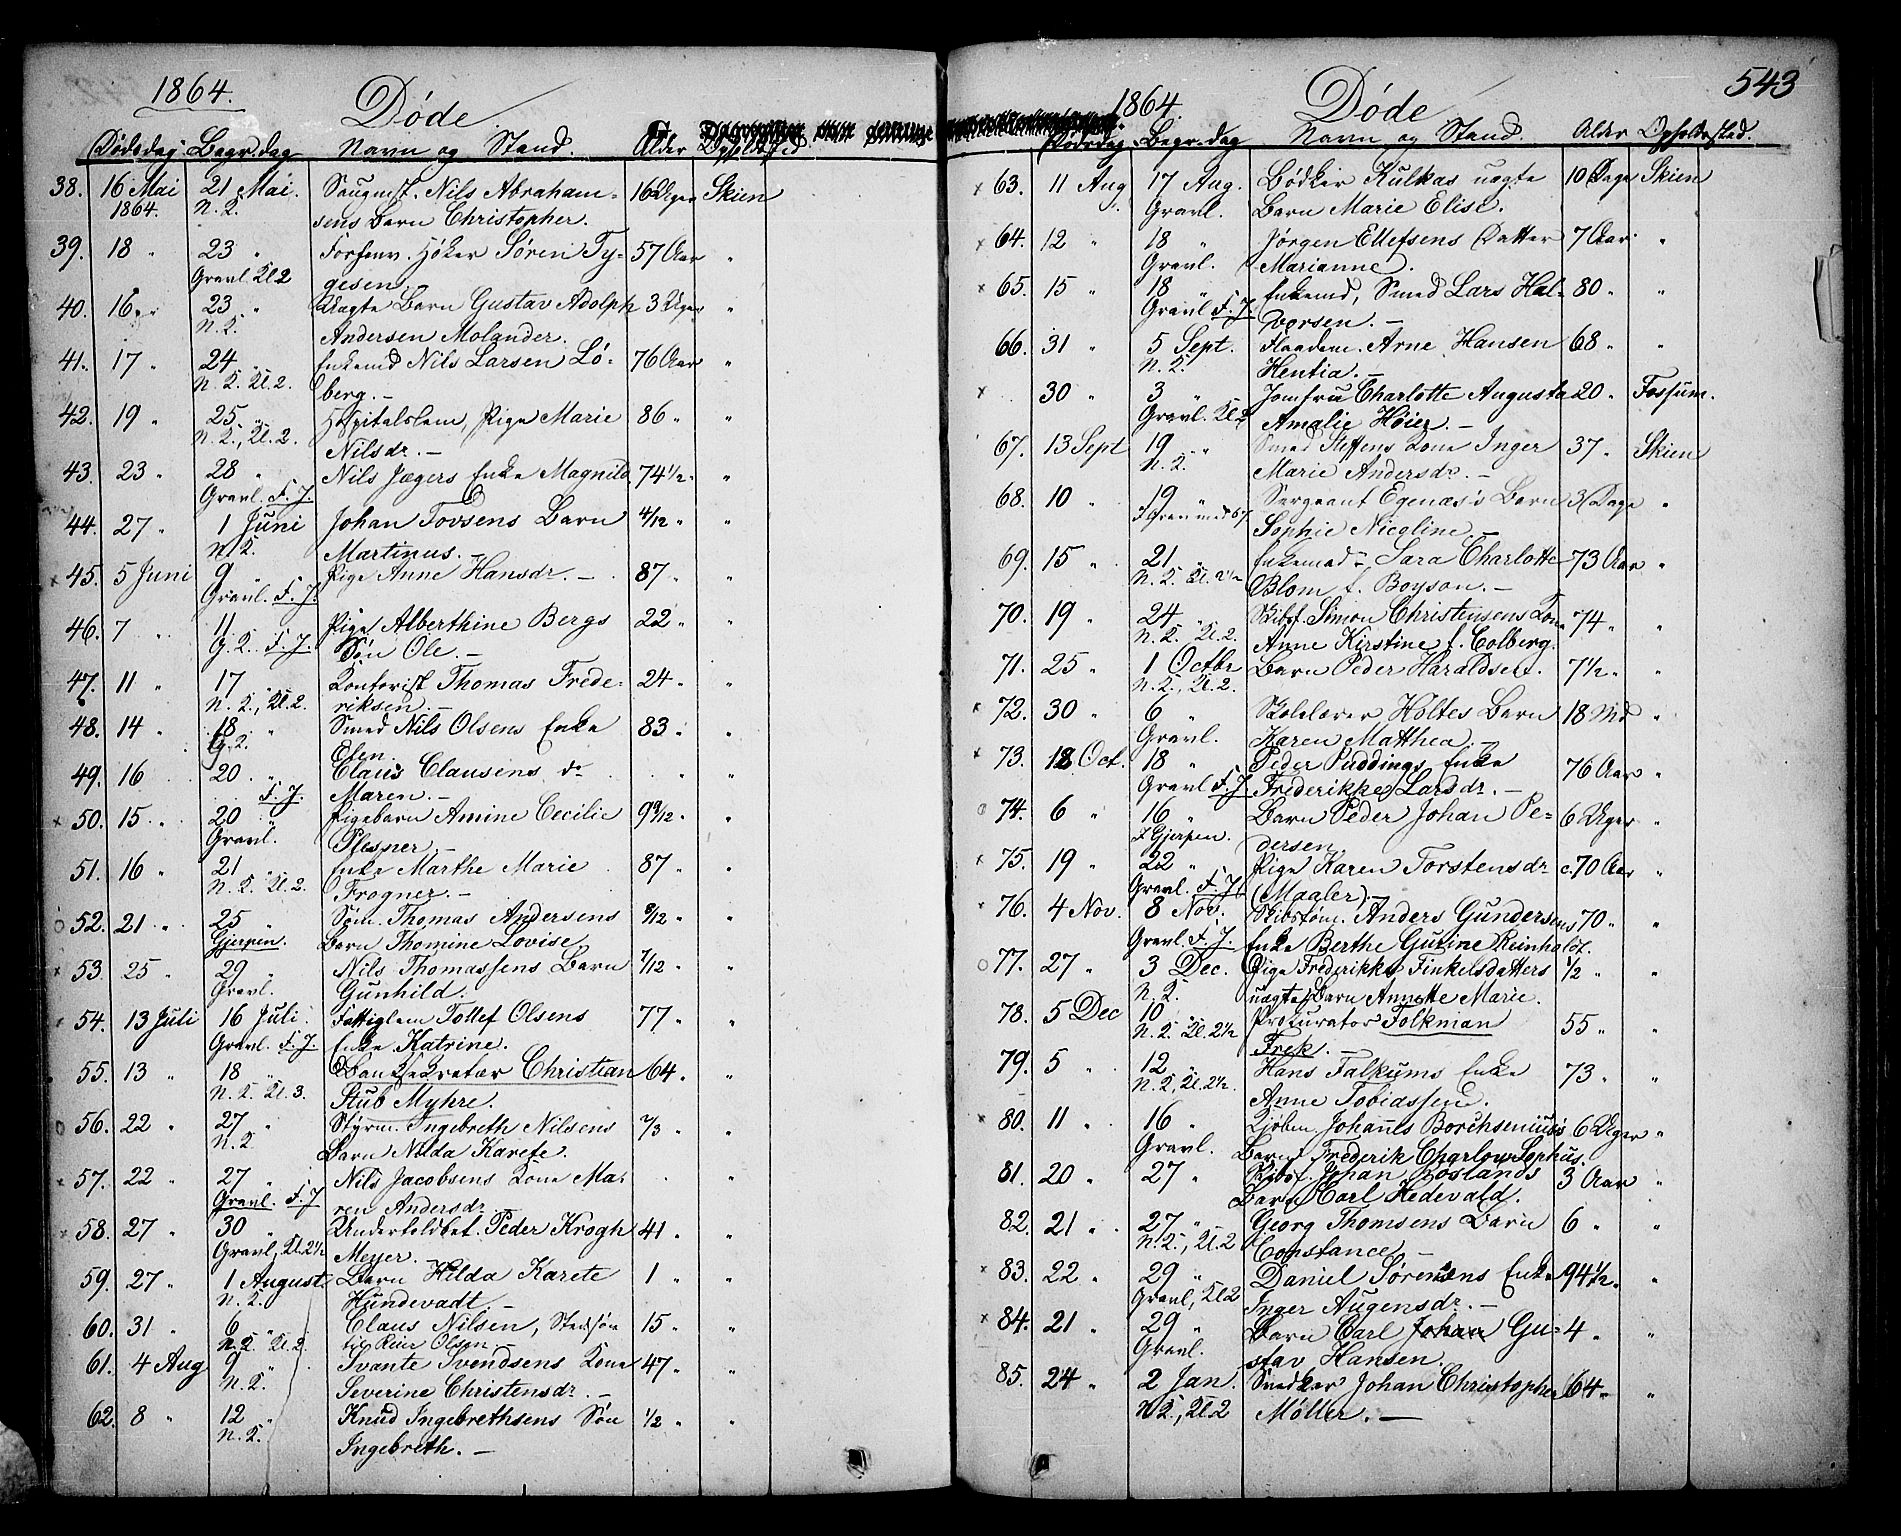 1864.
Døde.
Dødsdag Begr.dag Navn og Stand. Alder Opholdsted
38. 16 Mai 21 Mai. Saugmst. Nils Abraham= 16 Uger Skien
1864. N. K. sens Barn Christopher.
39. 18 " 23 " Forhenv. Høker Søren Ty= 57 Aar "
Gravl. Kl 2 gesen.
40. 16 " 23 " Uægte Barn Gustav Adolph 3 Uger "
N. K. Andersen Molander.
41. 17 " 24 " Enkemd Nils Larsen Lø- 76 Aar "
N. K. Kl. 2. berg. -
42. 19 " 25 " Hospitalslem, Pige Marie 86 " "
N. K., Kl. 2. Nilsdr. -
43. 23 " 28 " Nils Jægers Enke Magnild 74 1/2 " "
Gravl. F. J.
44. 27 " 1 Juni Johan Tovsens Barn 4/12 " "
N. K. Martinus. -
x 45. 5 Juni 9 " Pige Anne Hansdr. - 87 " "
Gravl. F. J.
46. 7 " 11 " Pige Alberthine Bergs 22 " "
G. K. F. J. Søn Ole. -
47. 11 " 17 " Kontorist Thomas Frede- 24 " "
N. K., Kl. 2. riksen. -
48. 14 " 18 " Smed Nils Olsens Enke 83 " "
G. K. Elen.
49. 16 " 20 " Claus Clausens do " "
F. J. Maren. -
x 50. 15 " 20 " Pigebarn Amine Cecilie 9 9/12 " "
Gravl. Plesner. -
51. 16 " 21 " Enke Marthe Marie 87 " "
N. K. Kl. 2. Frogner. -
o 52. 21 " 25 " Søm. Thomas Andersens 9/12 " "
Gjerpen. Barn Thomine Lovise.
x 53. 25 " 29 " Nils Thomassens Barn 7/12 " "
Gravl. Gunhild.
x 54. 13 Juli 16 Juli Fattiglem Tollef Olsens 77 " "
Gravl. F. J. Enke Katrine.
55. 13 " 18 " Banksekretær Christian 64 " "
N. K. Kl. 3. Stub Myhre.
o 56. 22 " 27 " Styrm. Ingebreth Nilsens 2/3 " "
N. K. Barn Nilda Karete.
x 57. 22 " 27 " Nils Jacobsens Kone Ma- "
Gravl. F. J ren Andersdr
x 58. 27 " 30 " Undertoldbet. Peder Krogh 41 " "
Gravl, Kl. 2 1/2 Meyer. -
59. 27 " 1 August. Barn Hilda Karete 1 " "
N. K. Hundevadt. -
60. 31 " 6 " Claus Nilsen, Stedsøn 15 " "
N. K. Kl. 2. til Reier Olsen -
61. 4 Aug 9 " Svante Svendsens Kone 47 " "
N. K. Severine Christensdr. -
62. 8 " 12 " Knud Ingebrethsens Søn 1/2 " "
N. K. Ingebreth. -
543
1864.
Døde
Dødsdag Begr.dag Navn og Stand. Alder Opholdssted.
x 63. 11 Aug 17 Aug. Bødker Kulkas uægte 10 Dage Skien
Gravl. Barn Marie Elise.
x 64. 12 " 18 " Jørgen Ellefsens Datter 7 Aar "
Gravl. Marianne.
x 65. 15 " 18 " Enkemd, Smed Lars Hal- 80 " "
Gravl F. J. vorsen. -
66. 31 " 5 Sept. Arne Hansen 68 " "
N. K. Hentia. -
x 30 " 3 " Jomfru Charlotte Augusta 20 " Fossum.
Gravl. Kl. Amalie Høier. -
67. 13 Sept 19 " Smed Steffens Kone Inger 37 " Skien
N. K. Marie Andersdr. -
68. 10 " 19 " Sergeant Egenæs's Barn 3 Dage "
Sophie Nicoline -
69. 15 " 21 " Enkemad - Sara Charlotte 73 Aar "
N. K. Kl. 2 1/2 Blom f. Boyson. -
70. 19 " 24 " Skibsf. Simon Christensens Kone 74 " "
N. K. Kl. 2. Anne Kirstine f. Colberg.
71. 25 " 1 Octbr Barn Peder Haraldsen. 7 1/2 " "
N. K., Kl. 2.
x 72. 30 " 6 " Skolelærer Holtes Barn 18 Md "
Gravl. Karen Matthea. -
x 73. 12 Oct. 18 " Peder Puddings Enke 76 Aar "
Gravl F. J. Frederikke Larsdr. -
o 74. 6 " 16 " Barn Peder Johan Pe= 6 Uger "
I Gjerpen. dersen.
x 75. 19 " 22 " Pige Karen Torstensdr c. 70 Aar "
Gravl. F. J (Magler). -
x 76. 4 Nov. 8 Nov. Skibstøm. Anders Gundersens 70 " "
Gravl. F. J. Enke Berthe Gurine Reinholdt.
o 77. 27 " 3 Dec. Pige Frederikke Finkelsdatters 1/2 " "
N. K. uægte Barn Annette Marie.
78. 5 Dec 10 " Prokurator Folkman 55 " "
N. K. Kl. 2 1/2 Frek. -
79. 5 " 12 " Hans Falkums Enke 73 " "
N. K, Kl. 2 1/2 Anne Tobiassen.
x 80. 11 " 16 " Kjøbm. Johannes Borchsenius's 6 Uger "
Gravl. Barn Frederik Charlow Sophus.
81. 20 " 27 " Skibsf. Johan Roslands 3 Aar "
Barn Carl Hedevald.
82. 21 " 27 " Georg Thomsens Barn 6 " "
N. K., Kl. 2 Constance -
x 83. 22 " 29 " Daniel Sørensens Enke 94 1/2 " "
Gravl, Kl 2 Inger Augensdr. -
x 84. 21 " 29 " Barn Carl Johan Gu= 4 " "
Gravl. stav Hansen.
85. 24 " 2 Jan. Snedker Johan Christopher 64 " "
N K., Kl. 2 Møller. -